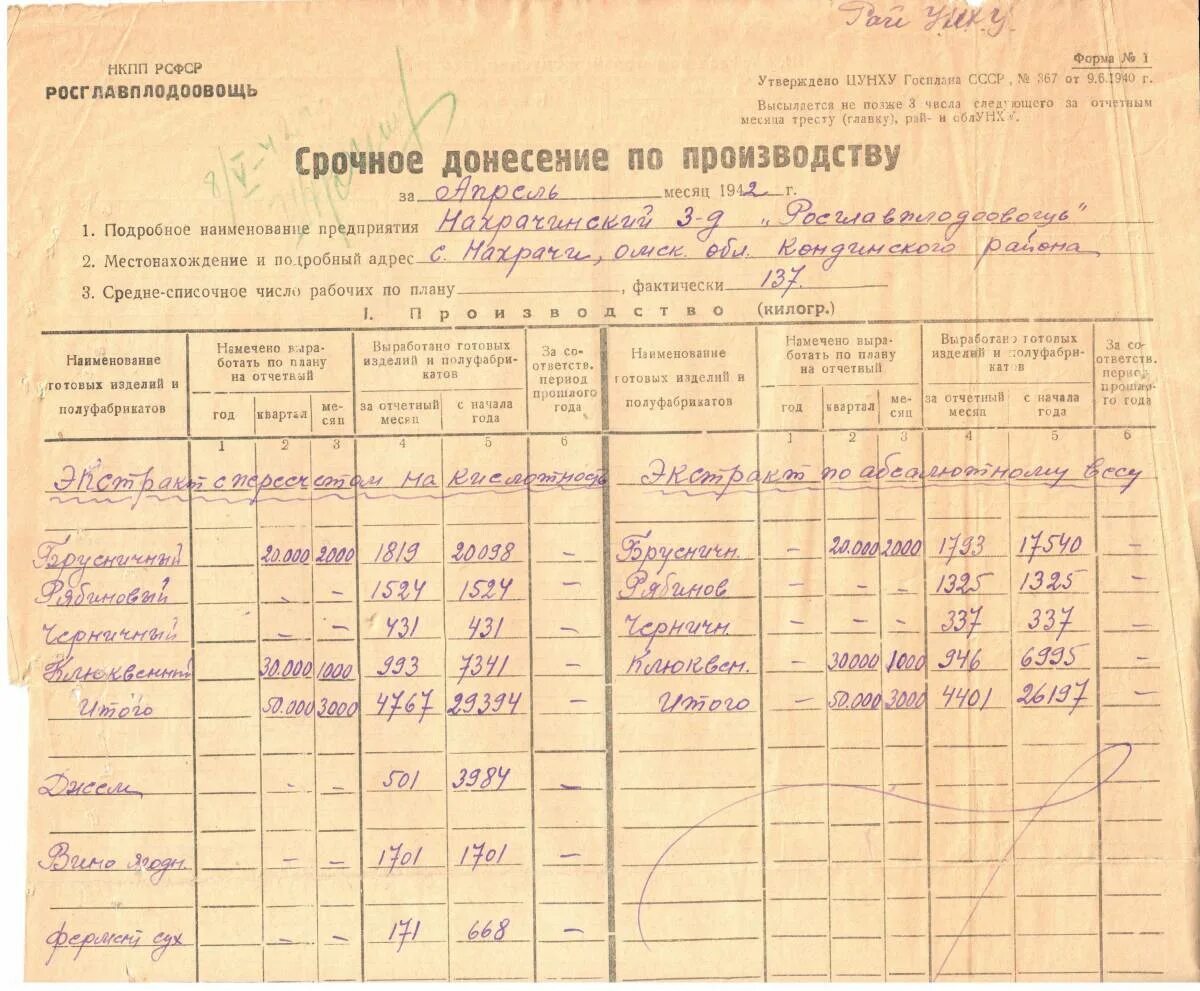 Рай УНХУ.
НКПП РСФСР
РОСГЛАВПЛОДООВОЩЬ
Форма № 1
Утверждено ЦУНХУ Госплана СССР, № 367 от 9.6.1940 г.
Высылается не позже 3 числа следующего за отчетным
месяца тресту (главку), рай- и облУНХУ.
8/V-42
Срочное донесение по производству
за Апрель месяц 1942 г.
1. Подробное наименование предприятия Нахрачинский з-д „Росглавплодоовощь"
2. Местонахождение и подробный адрес с. Нахрачи, омск. обл. Кондинского района
3. Средне-списочное число рабочих по плану , фактически 137.
I. Производство (килогр.)
Наименование готовых изделий и полуфабрикатов | Намечено выработать по плану на отчетный | Выработано готовых изделий и полуфабрикатов | За соответств. период прошлого года | Наименование готовых изделий и полуфабрикатов | Намечено выработать по плану на отчетный | Выработано готовых изделий и полуфабрикатов | За соответств. период прошлого года
год | квартал | месяц | за отчетный месяц | с начала года | год | квартал | месяц | за отчетный месяц | с начала года
1 2 3 4 5 6 1 2 3 4 5 6
Экстракт с пересчетом на кислотность Экстракт по абсалютному весу
Брусничный 20.000 2000 1819 20098 — Брусничн. — 20.000 2000 1793 17540 —
Рябиновый — — 1524 1524 — Рябинов — — — 1325 1325 —
Черничный — — 431 431 — Черничн. — — — 337 337 —
Клюквенный 30.000 1000 993 7341 — Клюквен. — 30000 1000 946 6995 —
Итого 50.000 3000 4767 29394 — Итого — 50.000 3000 4401 26197 —
Джем — — 501 3984 —
Вино ягодн. — — 1701 1701 —
фермент сух — — 171 668 —